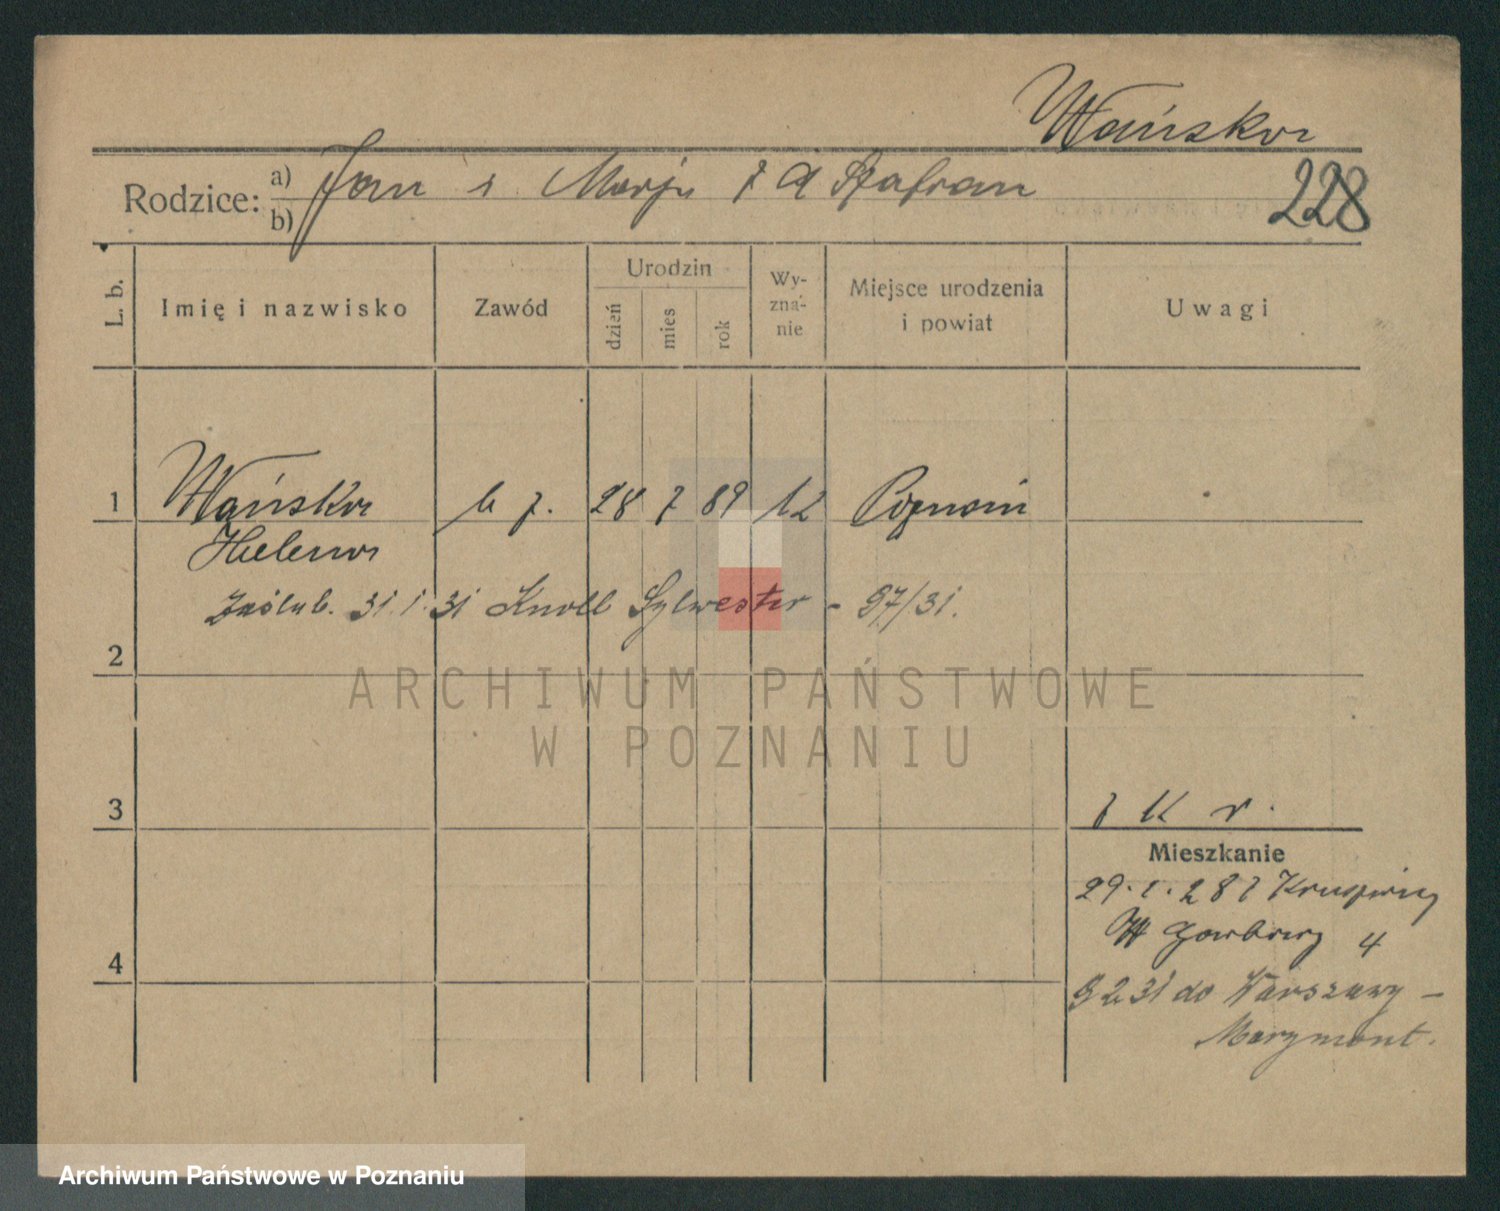 Wańska
Rodzice: a) Jan i Marja z d Szafran
b)
228
L. b. Imię i nazwisko Zawód Urodzin dzień mies rok Wy-zna-nie Miejsce urodzenia i powiat Uwagi
1 Wańska b z. 28 7 89 k Poznań
Helena
Zaślub. 31.1.31 Knoll Sylwester - 97/31.
2
ARCHIWUM PAŃSTWOWE
W POZNANIU
3
Mieszkanie
29.1.28 z Kruszwicy
W Garbary 4
4
9 2 31 do Warszawy –
Marymont.
Archiwum Państwowe w Poznaniu